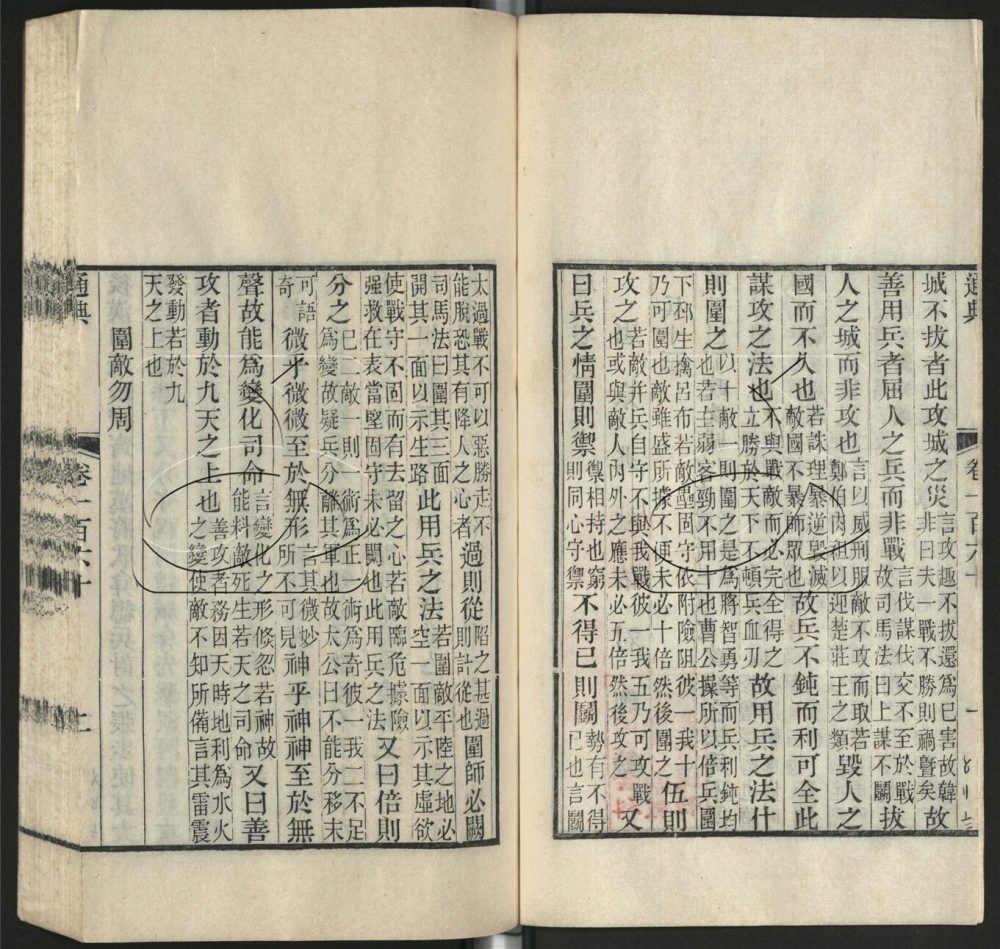 通典 卷一百六十 一
城不拔者此攻城之災言攻趣不拔還為己害故韓非曰夫一戰不勝則禍暨矣故
善用兵者屈人之兵而非戰言伐謀伐交不至於戰故司馬法曰上謀不鬬拔
人之城而非攻也言以威刑服敵不攻而取若鄭伯肉袒以迎楚莊王之類毀人之
國而不久也若誅理暴逆毀滅敵國不暴師眾也故兵不鈍而利可全此
謀攻之法也不與戰敵而必完全得之立勝於天下不頓兵血刃故用兵之法什
則圍之以十敵一則圍之是為將智勇等而兵利鈍均也若主弱客勁不用十也曹公操所以倍兵圍
下邳生擒呂布若敵壘固守依附險阻彼一我十乃可圍也敵雖盛所據不便未必十倍然後圍之伍則
攻之若敵并兵自守不與我戰彼一我五乃可攻戰也或與敵人內外之應未必五倍然後攻之又
曰兵之情圍則禦禦相持也窮則同心守禦不得已則鬬勢有不得已也言鬬
太過戰不可以惡勝走不能脫恐其有降人之心者過則從陷之甚過則計從也圍師必闕
司馬法曰圍其三面開其一面以示生路此用兵之法若圍敵平陸之地必空一面以示其虛欲
使戰守不固而有去留之心若敵臨危據險强救在表當堅固守未必闕也此用兵之法又曰倍則
分之已二敵一則一術為正一術為奇彼一我二不足為變故疑兵分離其軍也故太公曰不能分移未
可語奇微乎微微至於無形言其微妙所不可見神乎神神至於無
聲故能為變化司命言變化之形倏忽若神故能料敵死生若天之司命又曰善
攻者動於九天之上也善攻者務因天時地利為水火之變使敵不知所備言其雷震
發動若於九天之上也
圍敵勿周
通典 卷一百六十 二